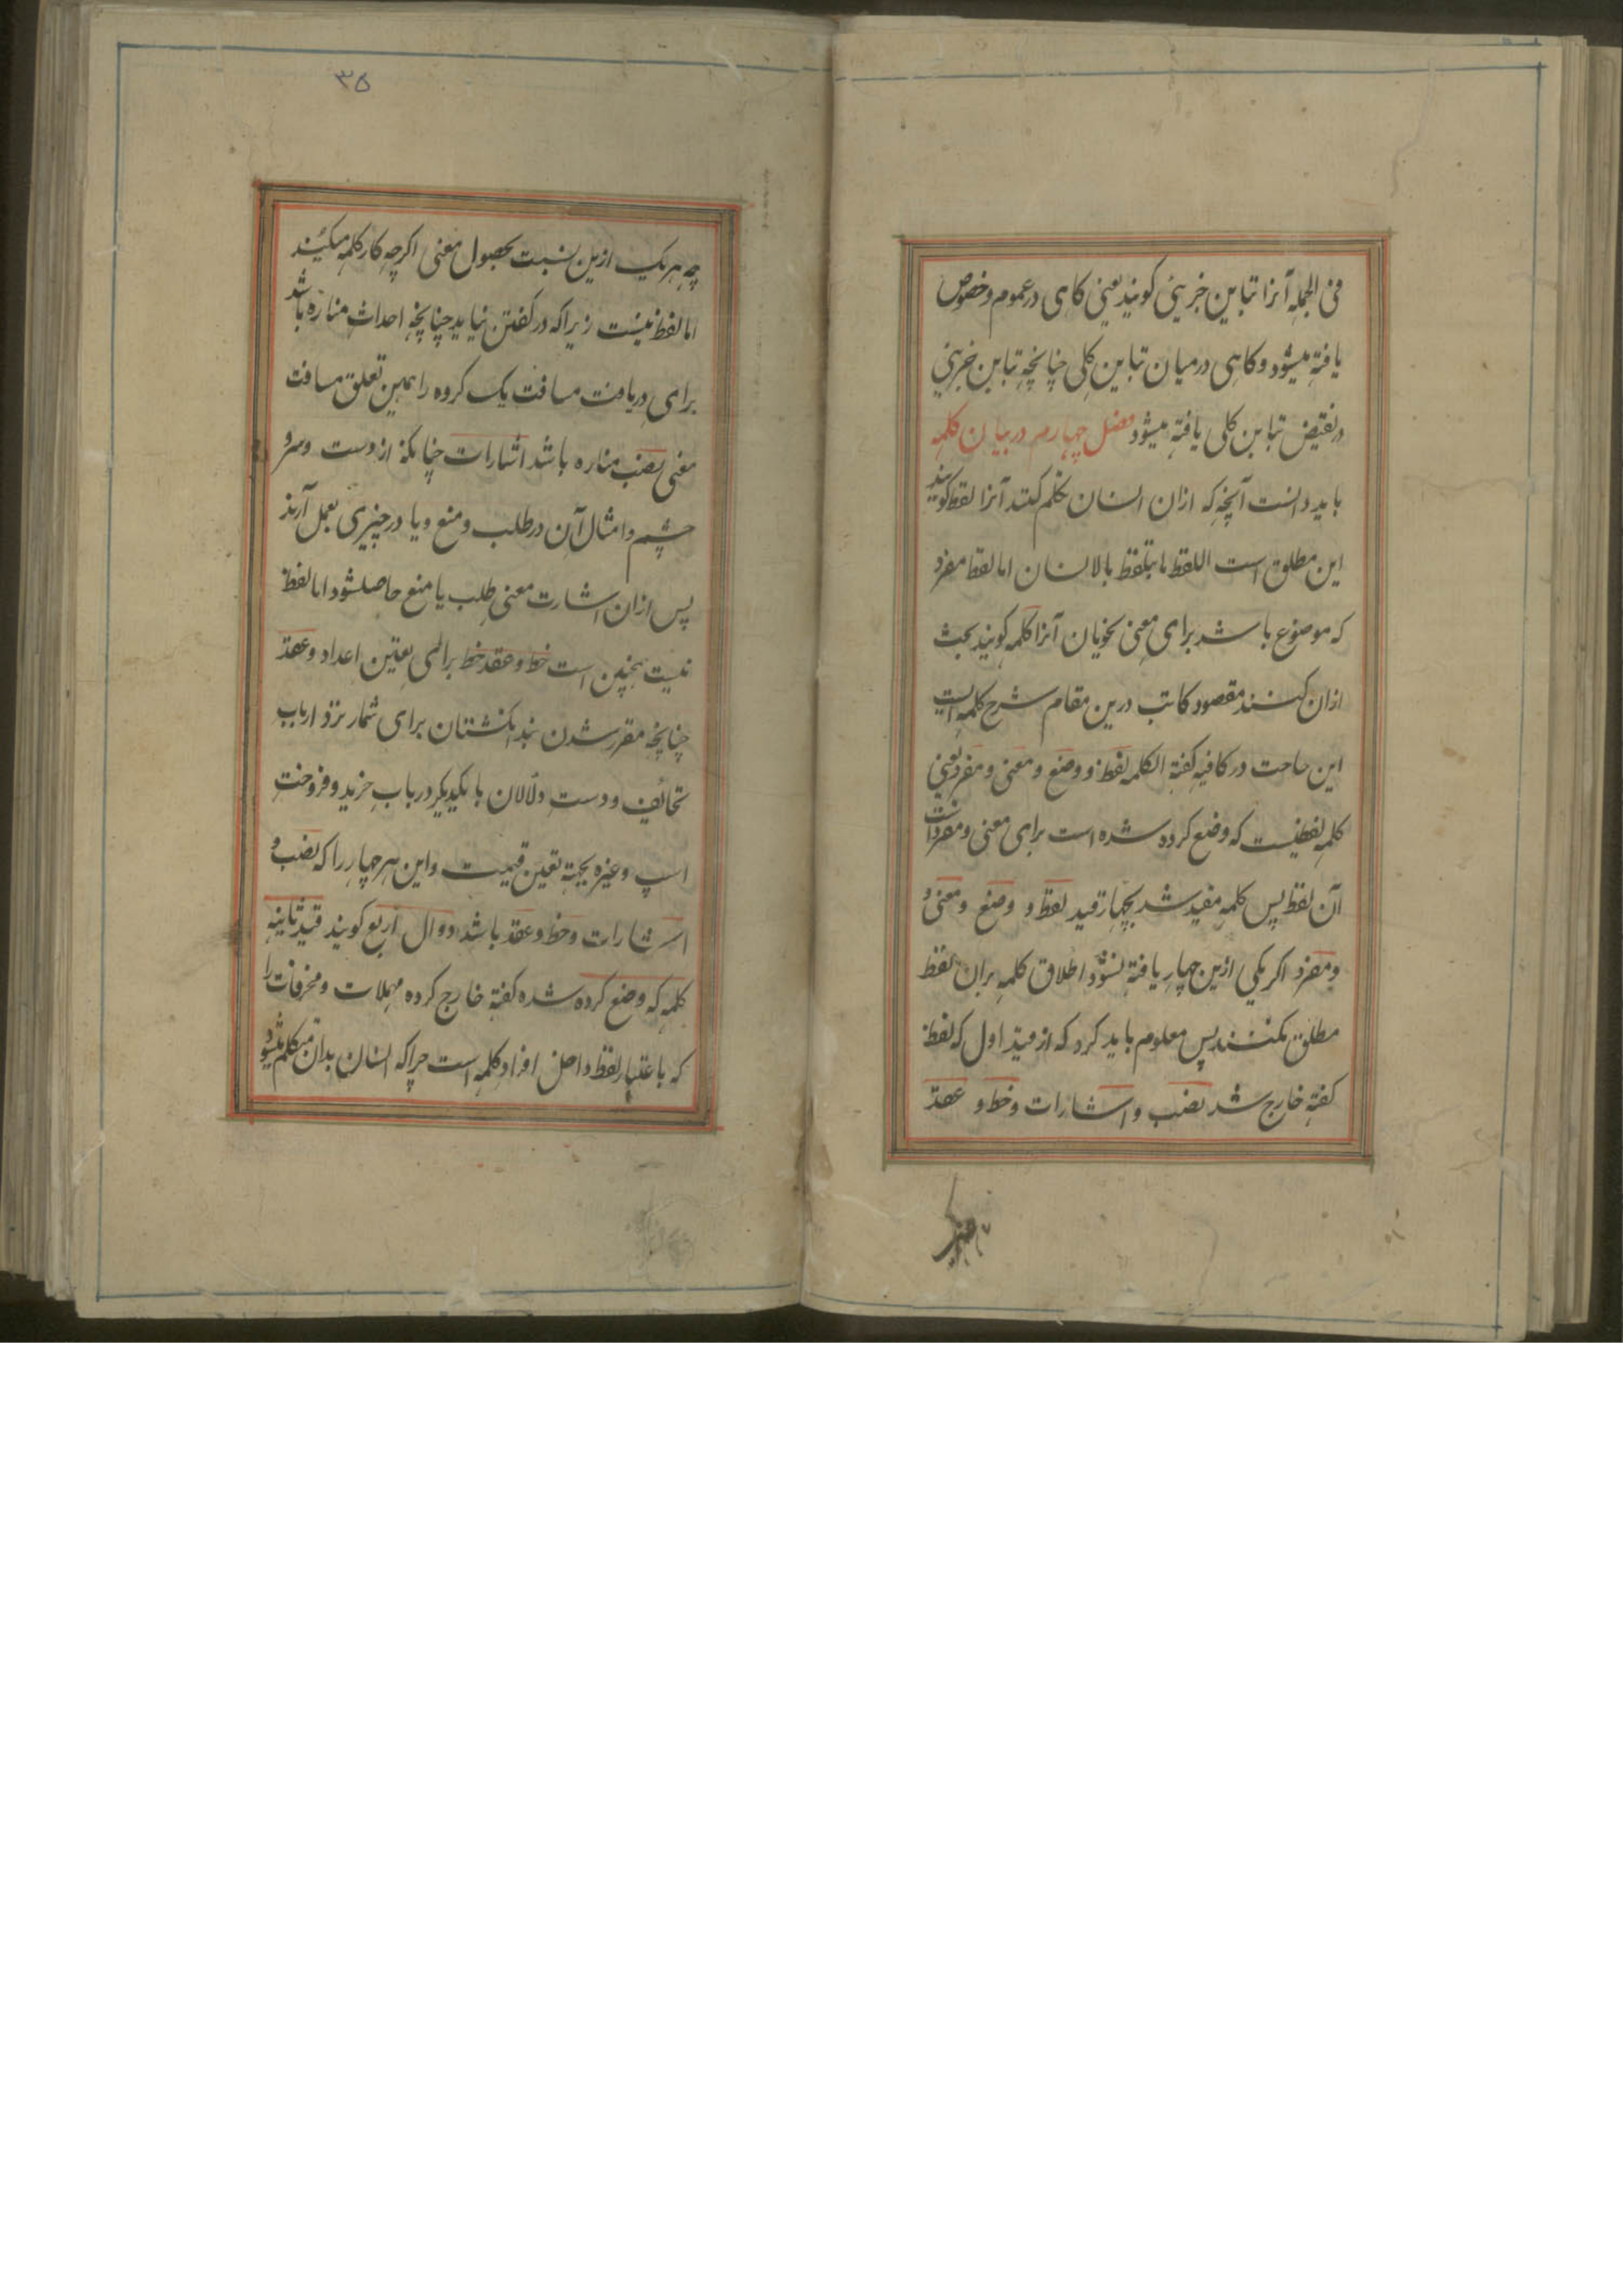 فی الجمله آنرا تباین جزیی کویند یعنی کاهی در عموم و خصوص
یافته میشود و کاهی درمیان تباین کلی چنانچه تباین جزیی
در نقیض تباین کلی یافته میشود فصل چهارم در بیان کلمه
باید دانست آنچه که ازان انسان تکلم کند آنرا لفظ کویند
این مطلق است اللفظ ما یتلفظ بالانسان اما لفظ مفرد
که موضوع باشد برای معنی نحویان آنرا کلمه کویند بحث
ازان کنند مقصود کاتب درین مقام شرح کلمه است
ابن حاجت در کافیه کفته الکلمه لفظ و وضع و معنی و مفرد یعنی
کلمه لفظیست که وضع کرده شده است برای معنی و مفرد است
آن لفظ پس کلمه مقید شد بچهار قید لفظ و وضع و معنی و
و مفرد اکر یکی ازین چهار یافته نشود اطلاق کلمه بران لفظ
مطلق نکنند پس معلوم باید کرد که از قید اول که لفظ
کفته خارج شد نصب و اشارات و خط و عقد
۳۵
چه هر یک ازین نسبت بحصول معنی اکرچه کار کلمه میکنند
اما لفظ نیست زیرا که در کفتن نیاید چنانچه احداث مناره باشد
برای دریافت مسافت یک کروه را همین تعلق مسافت
معنی نصب مناره باشد اشارات چنانکه از دست و سر و
چشم و امثال آن در طلب و منع و یا در چیزی بعمل آرند
پس ازان اشارت معنی طلب یا منع حاصلشود اما لفظ
نیست همچنین است خط و عقد خط برای تعین اعداد و عقد
چنانچه مقرر شدن بند انکشتان برای شمار نزد ارباب
تحائف و دست دلالان با یکدیکر در باب خرید و فروخت
اسپ و غیره بجهته تعین قیمت و این هر چهار را که نصب و
اشارات و خط و عقد باشد دوال اربع کویند قید ثانیه
کلمه که وضع کرده شده کفته خارج کرده مهملات و محرفات را
که باعتبار لفظ داخل افراد کلمه است چرا که انسان بدان متکلم میشود